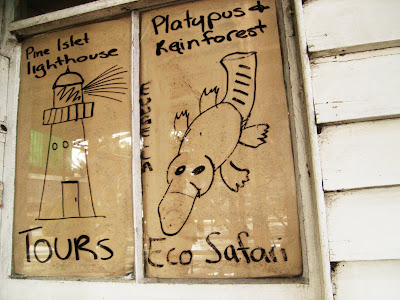 Pine Islet
lighthouse
TOURS
Platypus &
Rainforest
EUNGELLA
Eco Safari